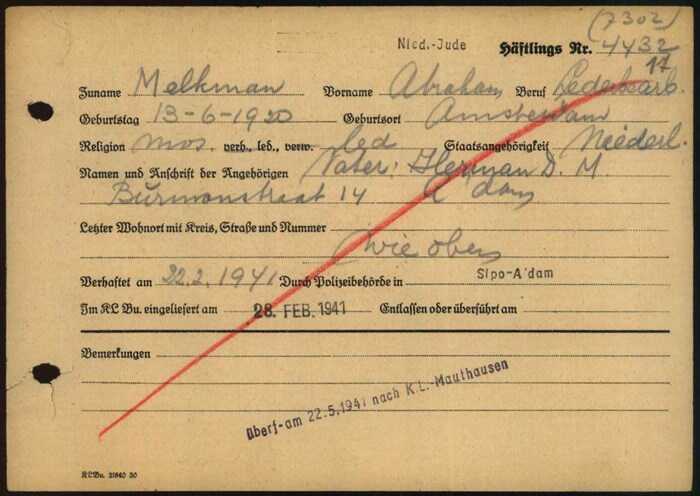 (7302)
Nied.-Jude Häftlings Nr. 4432
17
Zuname Melkman Vorname Abraham Beruf Lederbearb.
Geburtstag 13-6-1920 Geburtsort Amsterdam
Religion mos. verh., led., verw. led Staatsangehörigkeit Niederl.
Namen und Anschrift der Angehörigen Vater: Herman D. M.
Burmanstraat 14 A'dam
Letzter Wohnort mit Kreis, Straße und Nummer
wie oben
Verhaftet am 22.2.1941 Durch Polizeibehörde in Sipo-A'dam
Im KL Bu. eingeliefert am 28. FEB. 1941 Entlassen oder überführt am
Bemerkungen
überf-am 22.5.1941 nach K.L.-Mauthausen
KLBu. 21840 30